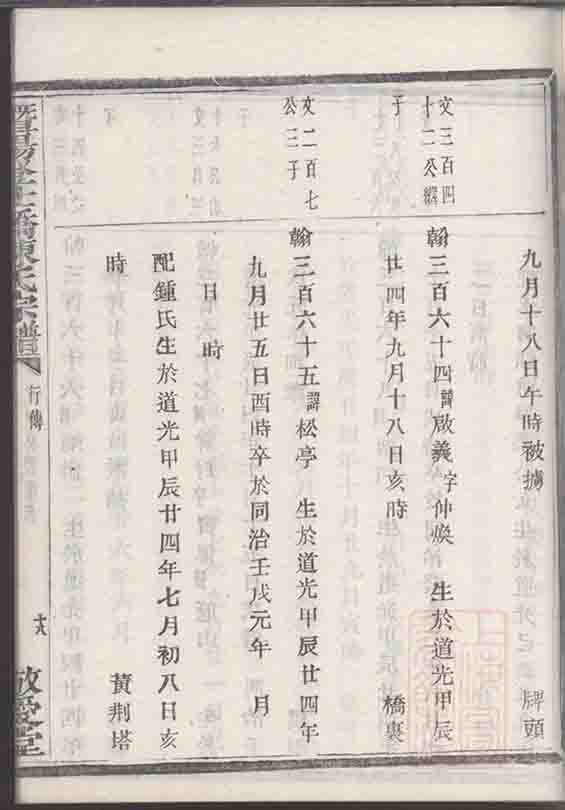 九月十八日午時被擄　牌頭
文三百四
十二公繼
子
翰三百六十四諱啟義字仲煥　生於道光甲辰
廿四年九月十八日亥時　橋裏
文二百七
公三子
翰三百六十五諱松亭　生於道光甲辰廿四年
九月廿五日酉時卒於同治壬戌元年　月
日　時
配鍾氏生於道光甲辰廿四年七月初八日亥
時　黄荆塔
暨陽
橋陳氏宗譜
行傳
敬愛堂